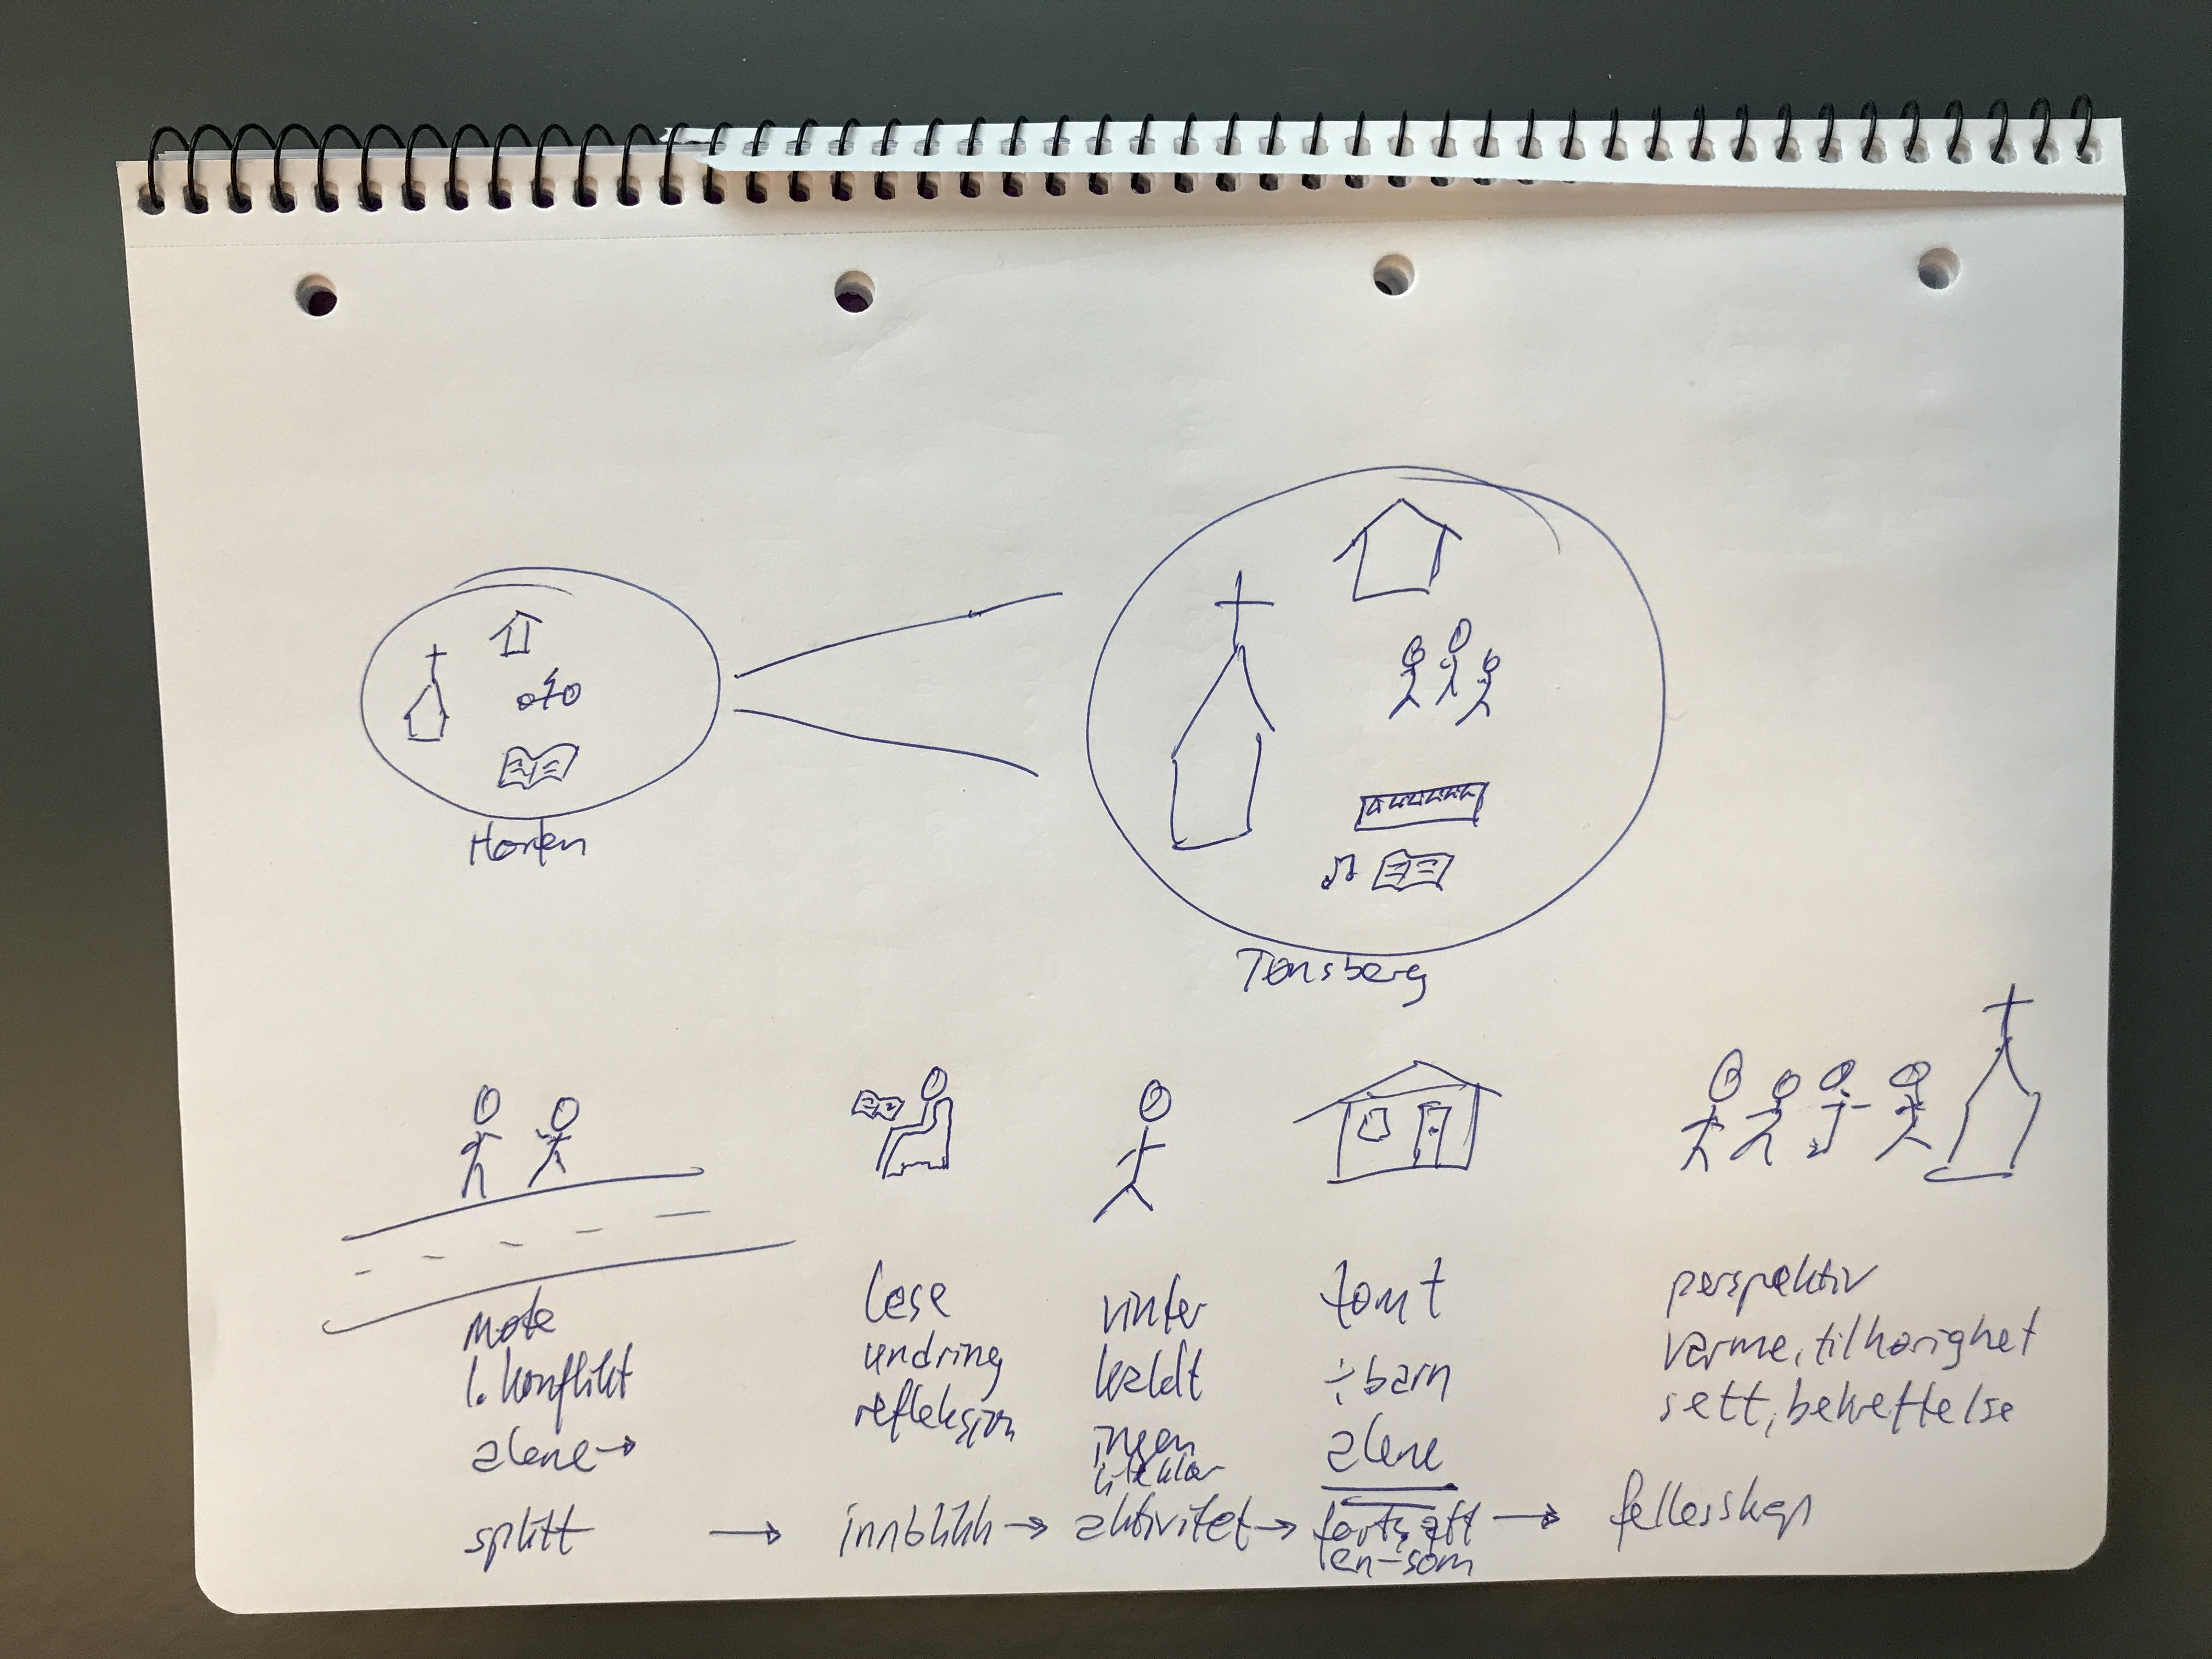 Horten
Tønsberg
møte
1. konflikt
alene →
splitt →
lese
undring
refleksjon
innblikk →
vinter
kaldt
ingen
aktivitet →
tomt
÷ barn
alene
fortsatt →
en-som
perspektiv
varme, tilhørighet
sett, bekreftelse
fellesskap